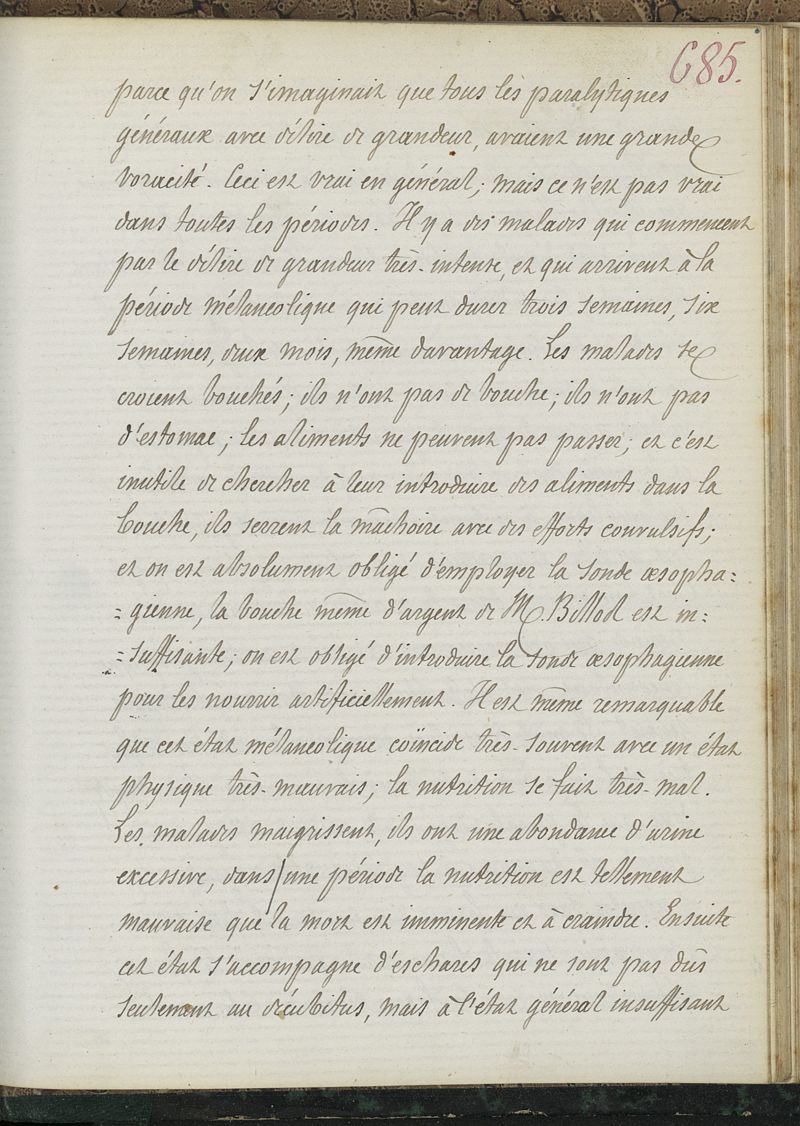 685.
parce qu'on s'imaginait que tous les paralytiques
généraux avec délire de grandeur, avaient une grande
voracité. Ceci est vrai en général; mais ce n'est pas vrai
dans toutes les périodes. Il y a des malades qui commencent
par le délire de grandeur très-intense, et qui arrivent à la
période mélancolique qui peut durer trois semaines, six
semaines, deux mois, même davantage. Les malades se
croient bouchés; ils n'ont pas de bouche; ils n'ont pas
d'estomac; les aliments ne peuvent pas passer; et c'est
inutile de chercher à leur introduire des aliments dans la
bouche, ils serrent la mâchoire avec des efforts convulsifs;
et on est absolument obligé d'employer la sonde œsopha=
=gienne, la bouche même d'argent de M. Billod est in=
=suffisante; on est obligé d'introduire la sonde œsophagienne
pour les nourrir artificiellement. Il est même remarquable
que cet état mélancolique coïncide très-souvent avec un état
physique très-mauvais; la nutrition se fait très-mal.
Les malades maigrissent, ils ont une abondance d'urine
excessive, dans une période la nutrition est tellement
mauvaise que la mort est imminente et à craindre. Ensuite
cet état s'accompagne d'eschares qui ne sont pas dûs
seulement au décubitus, mais à l'état général insuffisant